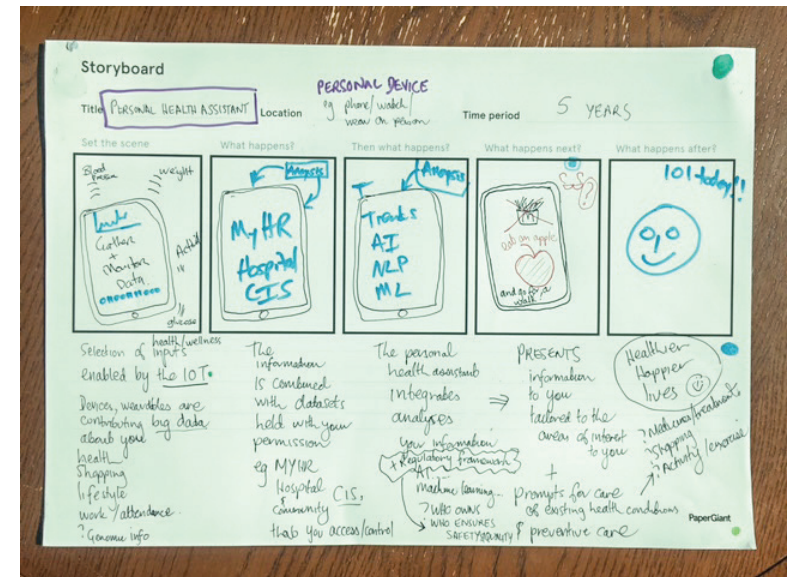 Storyboard
Title PERSONAL HEALTH ASSISTANT
Location
PERSONAL DEVICE
eg phone/watch/
wear on person
Time period 5 YEARS
Set the scene
What happens?
Then what happens?
What happens next?
What happens after?
Blood
Pressure
weight
Gather
+
Monitor
Data
glucose
MyHR
Hospital
CIS
Trends
AI
NLP
ML
eat an apple
and go for a
walk
101 today!!
Selection of health/wellness
inputs
enabled by the IOT.
Devices, wearables are
contributing big data
about you
health
shopping
lifestyle
work/attendance
? Genomic info
The
information
is combined
with datasets
held with your
permission
eg MYHR
Hospital
&
Community CIS,
that you access/control
The personal
health assistant
integrates
analyses
your information
+ Regulatory framework
AI
machine learning...
? WHO OWNS
→ WHO ENSURES
SAFETY/QUALITY
⇒ PRESENTS
information
to you
tailored to the
areas of interest
to you
+
prompts for care
of existing health conditions
& preventive care
Healthier
Happier
lives
? Medicines/treatments
? Shopping
? Activity/exercise
PaperGiant